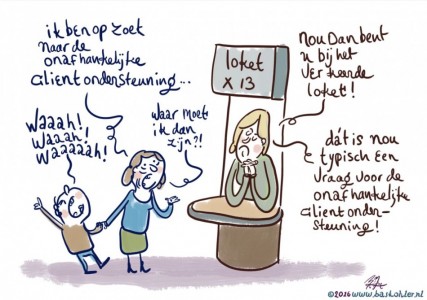 ik ben op zoet
naar de
onafhankelijke
clientondersteuning...
waaah!
waaah!
waaaaah!
waar moet
ik dan
zijn?!
loket
x 13
nou dan bent
u bij het
verkeerde
loket!
dát is nou
typisch een
vraag voor de
onafhankelijke
clientonder-
steuning!
©2016 www.baskohler.nl